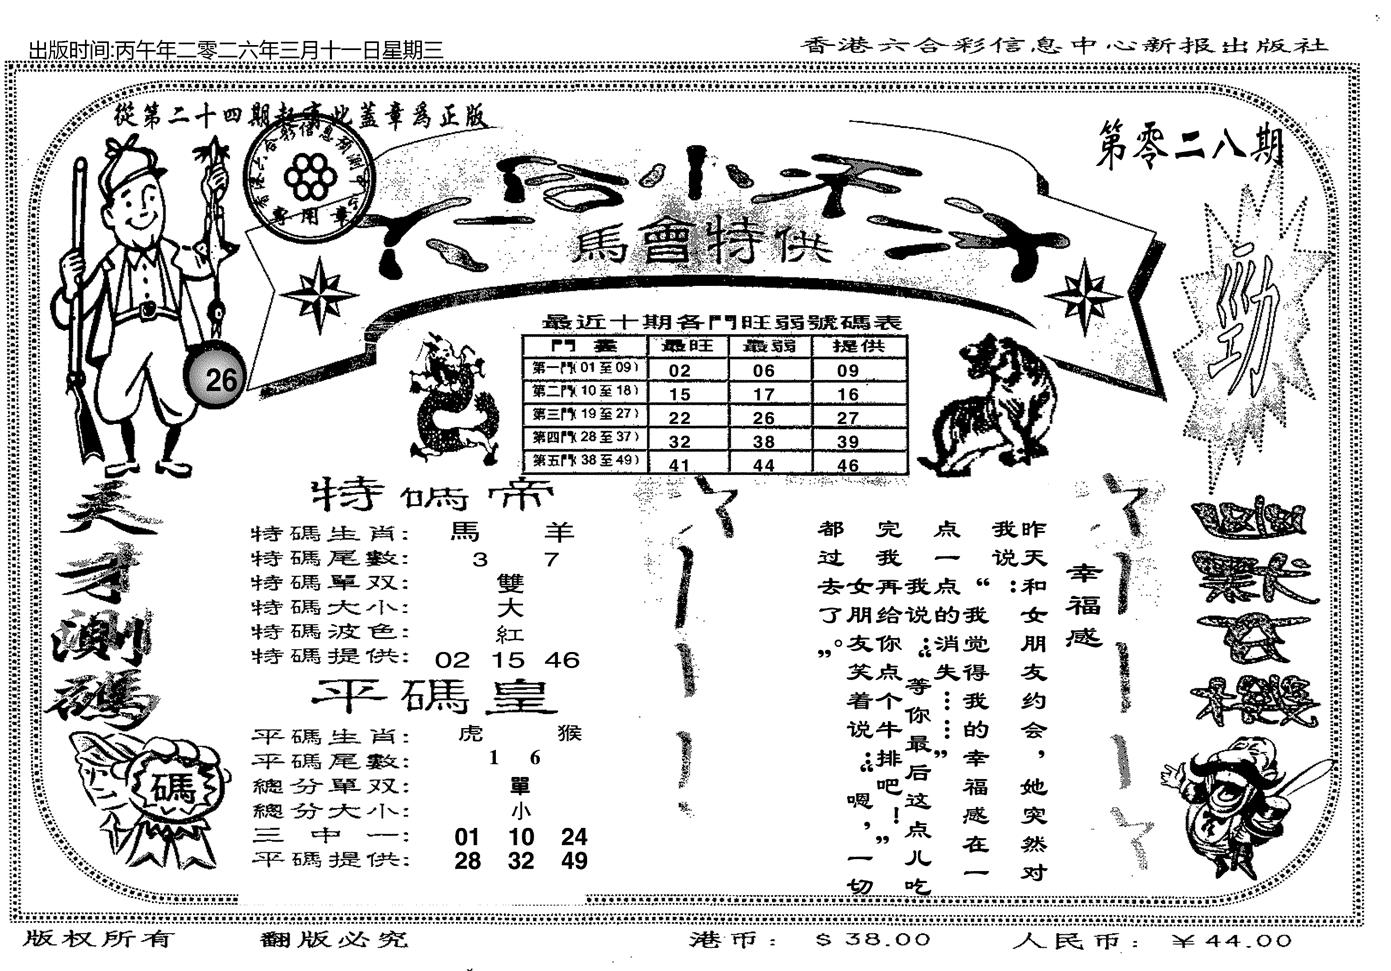 出版时间:丙午年二零二六年三月十一日星期三
香港六合彩信息中心新报出版社
從第二十四期起
此蓋章爲正版
專用章
第零二八期
六合小子
馬會特供
勁
26
最近十期各門旺弱號碼表
門 最旺 最弱 提供
第一門(01至09) 02 06 09
第二門(10至18) 15 17 16
第三門(19至27) 22 26 27
第四門(28至37) 32 38 39
第五門(38至49) 41 44 46
天才測碼
碼
特碼帝
特碼生肖: 馬 羊
特碼尾數: 3 7
特碼單双: 雙
特碼大小: 大
特碼波色: 紅
特碼提供: 02 15 46
平碼皇
平碼生肖: 虎 猴
平碼尾數: 1 6
總分單双: 單
總分大小: 小
三中一: 01 10 24
平碼提供: 28 32 49
幸福感
昨天和女朋友约会，她突然对
我说：
“我觉得我的幸福感在一
点一点的消失……”
我说：“等你最后这点儿吃
完我再给你点个牛排吧！”
女朋友笑着说：“嗯，一切
都过去了。”
版权所有
翻版必究
港币： $38.00
人民币：￥44.00